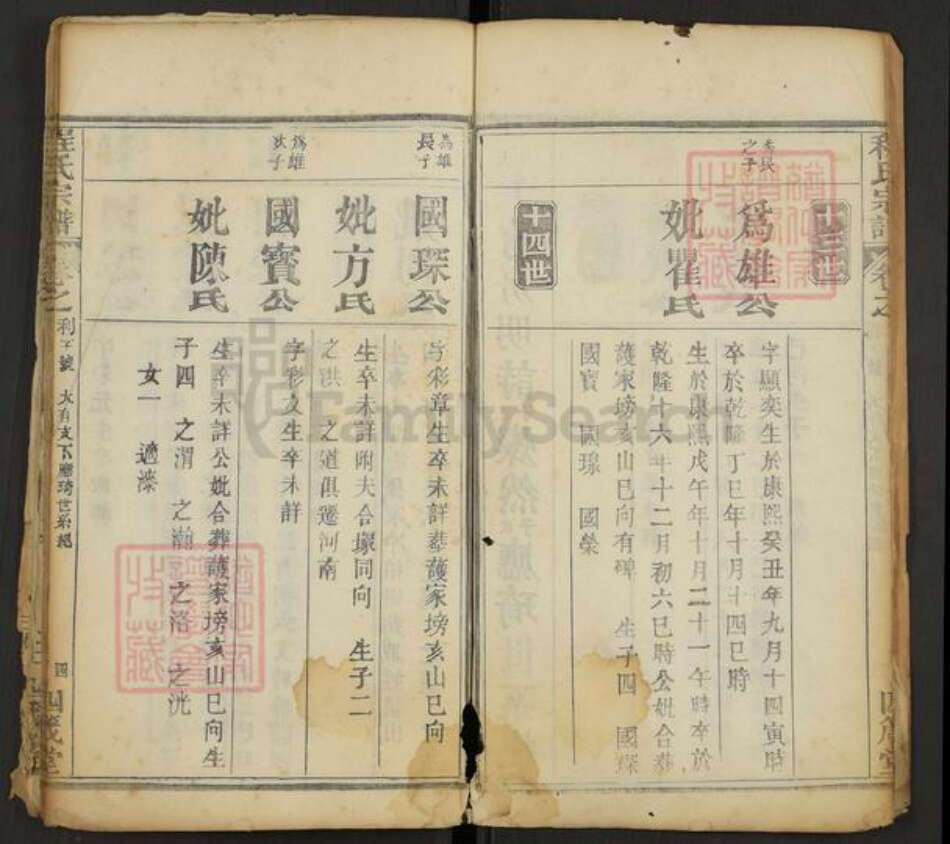 程氏宗譜
卷之
四箴堂
十三世
秀民
之子
爲雄公
妣瞿氏
字顯奕生於康熙癸丑年九月十四寅時
卒於乾隆丁巳年十月十四巳時
生於康熙戊午年十月二十一午時卒於
乾隆十六年十二月初六巳時公妣合葬
護家塝亥山巳向有碑 生子四 國琛
國寶 國瑔 國榮
十四世
爲雄
長子
國琛公
妣方氏
字彩章生卒未詳葬護家塝亥山巳向
生卒未詳附夫合塚同向 生子二
之洪 之道俱遷河南
爲雄
次子
國寳公
妣陳氏
字彩文生卒未詳
生卒未詳公妣合葬護家塝亥山巳向生
子四 之渭 之瀚 之洛 之洸
女一 適溱
程氏宗譜
卷之
利字號 大有支下應琦世系總
四
四箴堂
FamilySearch